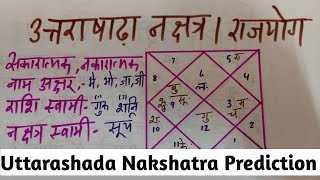 उत्तराषाढ़ा नक्षत्र। राजयोग
सकारात्मक, नकारात्मक
नाम अक्षर,- भे, भो, जा, जी
राशि स्वामी- गुरु शनि
नक्षत्र स्वामी- सूर्य
7
5
8
6
4
ल
9
3
10
12
2
11
1
Uttarashada Nakshatra Prediction